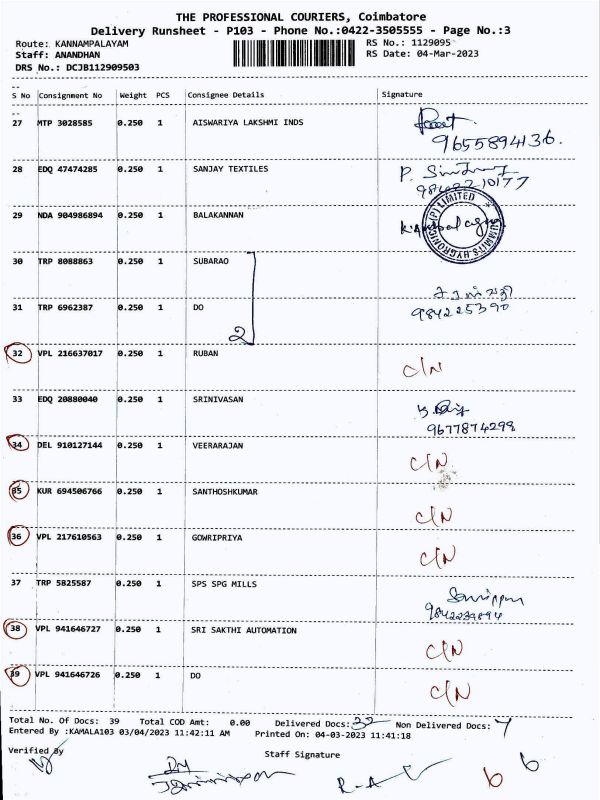 THE PROFESSIONAL COURIERS, Coimbatore
Delivery Runsheet - P103 - Phone No.:0422-3505555 - Page No.:3
Route: KANNAMPALAYAM RS No.: 1129095
Staff: ANANDHAN RS Date: 04-Mar-2023
DRS No.: DCJB112909503
S No Consignment No Weight PCS Consignee Details Signature
27 MTP 3028585 0.250 1 AISWARIYA LAKSHMI INDS
9655894136.
28 EDQ 47474285 0.250 1 SANJAY TEXTILES P.
29 NDA 904986894 0.250 1 BALAKANNAN
30 TRP 8088863 0.250 1 SUBARAO
31 TRP 6962387 0.250 1 DO
984225390
2
32 VPL 216637017 0.250 1 RUBAN C/N
33 EDQ 20880040 0.250 1 SRINIVASAN
9677874298
34 DEL 910127144 0.250 1 VEERARAJAN C/N
35 KUR 694506766 0.250 1 SANTHOSHKUMAR C/N
36 VPL 217610563 0.250 1 GOWRIPRIYA C/N
37 TRP 5825587 0.250 1 SPS SPG MILLS
38 VPL 941646727 0.250 1 SRI SAKTHI AUTOMATION C/N
39 VPL 941646726 0.250 1 DO C/N
Total No. Of Docs: 39 Total COD Amt: 0.00 Delivered Docs: 32 Non Delivered Docs: 7
Entered By :KAMALA103 03/04/2023 11:42:11 AM Printed On: 04-03-2023 11:41:18
Verified By Staff Signature
6 6